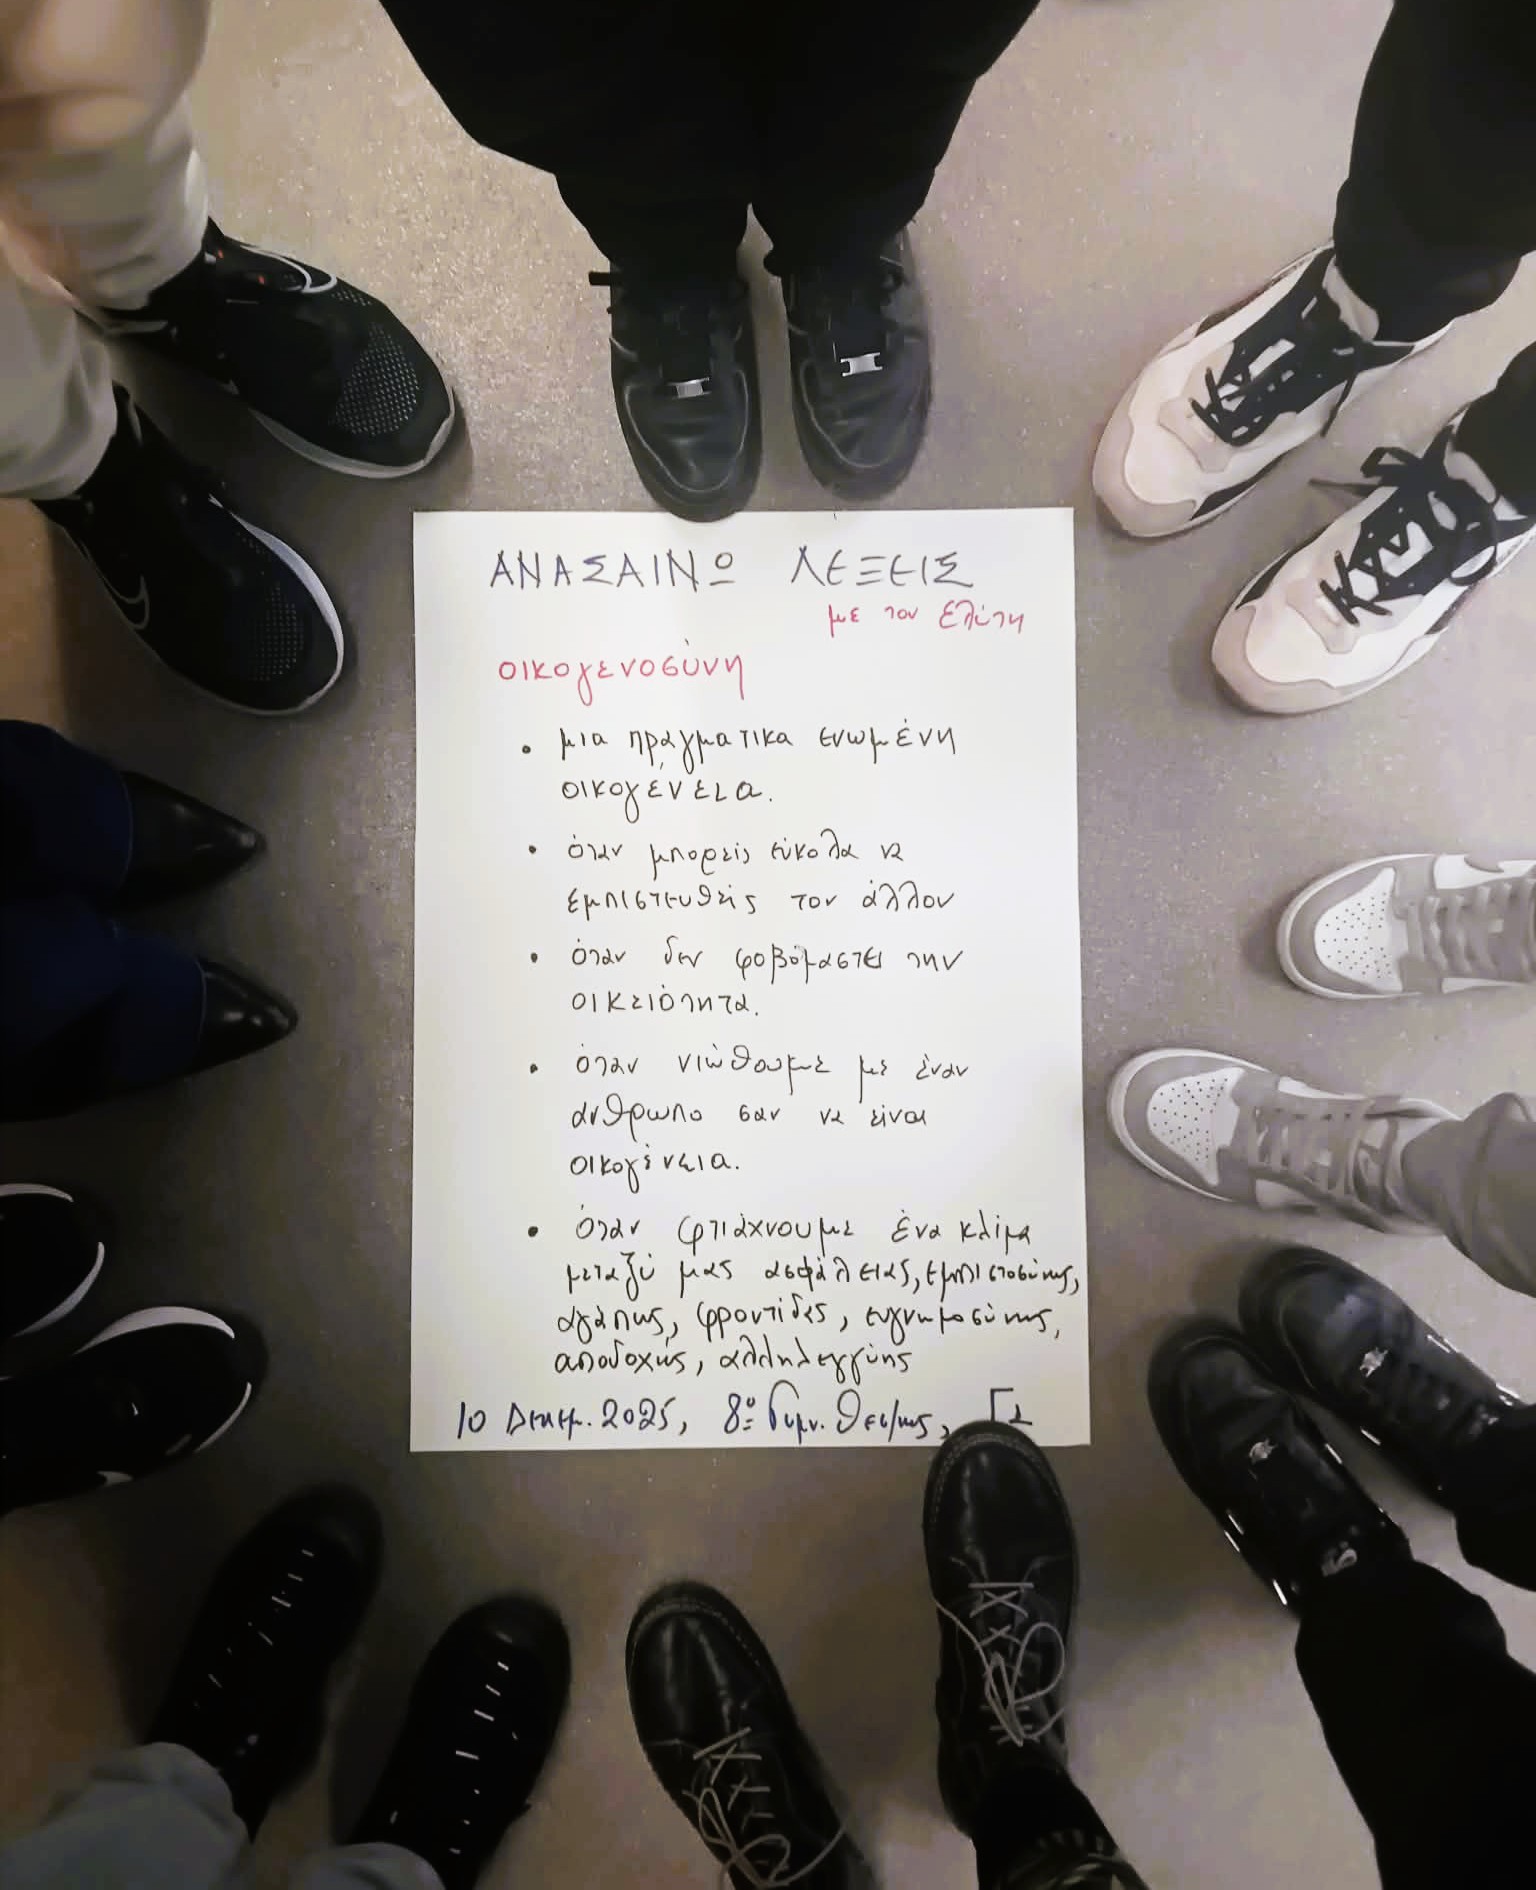 ΑΝΑΣΑΙΝΩ ΛΕΞΕΙΣ
με τον Ελύτη
οικογενοσύνη
• μια πραγματικα ενωμένη
οικογένεια.
• όταν μπορείς εύκολα να
εμπιστευθείς τον άλλον
• όταν δεν φοβόμαστε την
οικειότητα.
• όταν νιώθουμε με έναν
άνθρωπο σαν να είναι
οικογένεια.
• όταν φτιάχνουμε ένα κλίμα
μεταξύ μας ασφάλειας, εμπιστοσύνης,
αγάπης, φροντίδες, ευγνωμοσύνης,
αποδοχής, αλληλεγγύης
10 Δεκεμ. 2025, 8º Γυμν. Θεσ/κης,